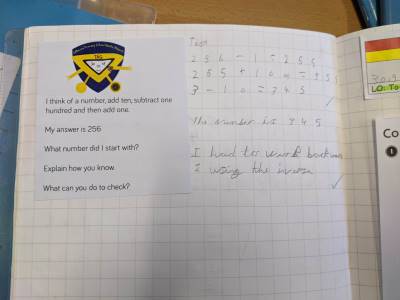 I think of a number, add ten, subtract one
hundred and then add one.
My answer is 256
What number did I start with?
Explain how you know.
What can you do to check?
256 - 1 = 255
255 + 100 = 355
3 - 10 = 345
The number is 345
I had to work
using the inverse
LO: To
Co